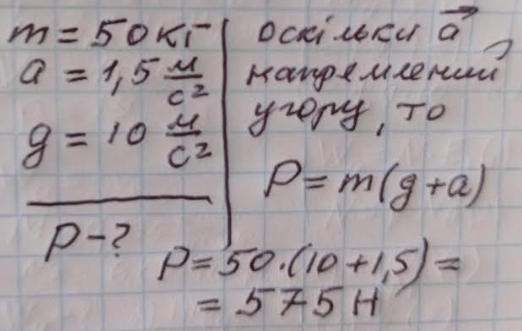 m = 50 кг
a = 1,5 м/с²
g = 10 м/с²
P - ?
оскільки a⃗
напрямлений
угору, то
P = m(g+a)
P = 50·(10+1,5) =
= 575 Н